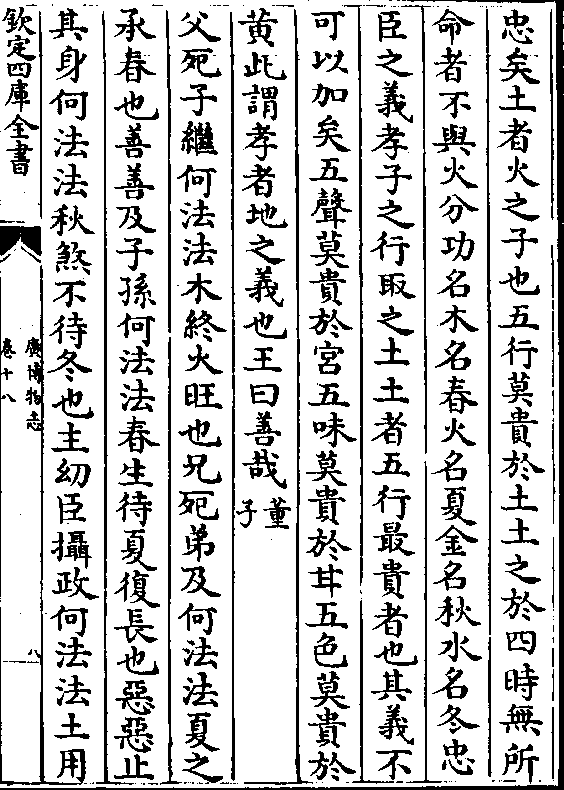 忠矣土者火之子也五行莫貴於土土之於四時無所
命者不與火分功名木名春火名夏金名秋水名冬忠
臣之義孝子之行取之土土者五行最貴者也其義不
可以加矣五聲莫貴於宮五味莫貴於甘五色莫貴於
黄此謂孝者地之義也王曰善哉董子
父死子繼何法法木終火旺也兄死弟及何法法夏之
承春也善善及子孫何法法春生待夏復長也惡惡止
其身何法法秋煞不待冬也主幼臣攝政何法法土用
欽定四庫全書
廣博物志
卷十八
八